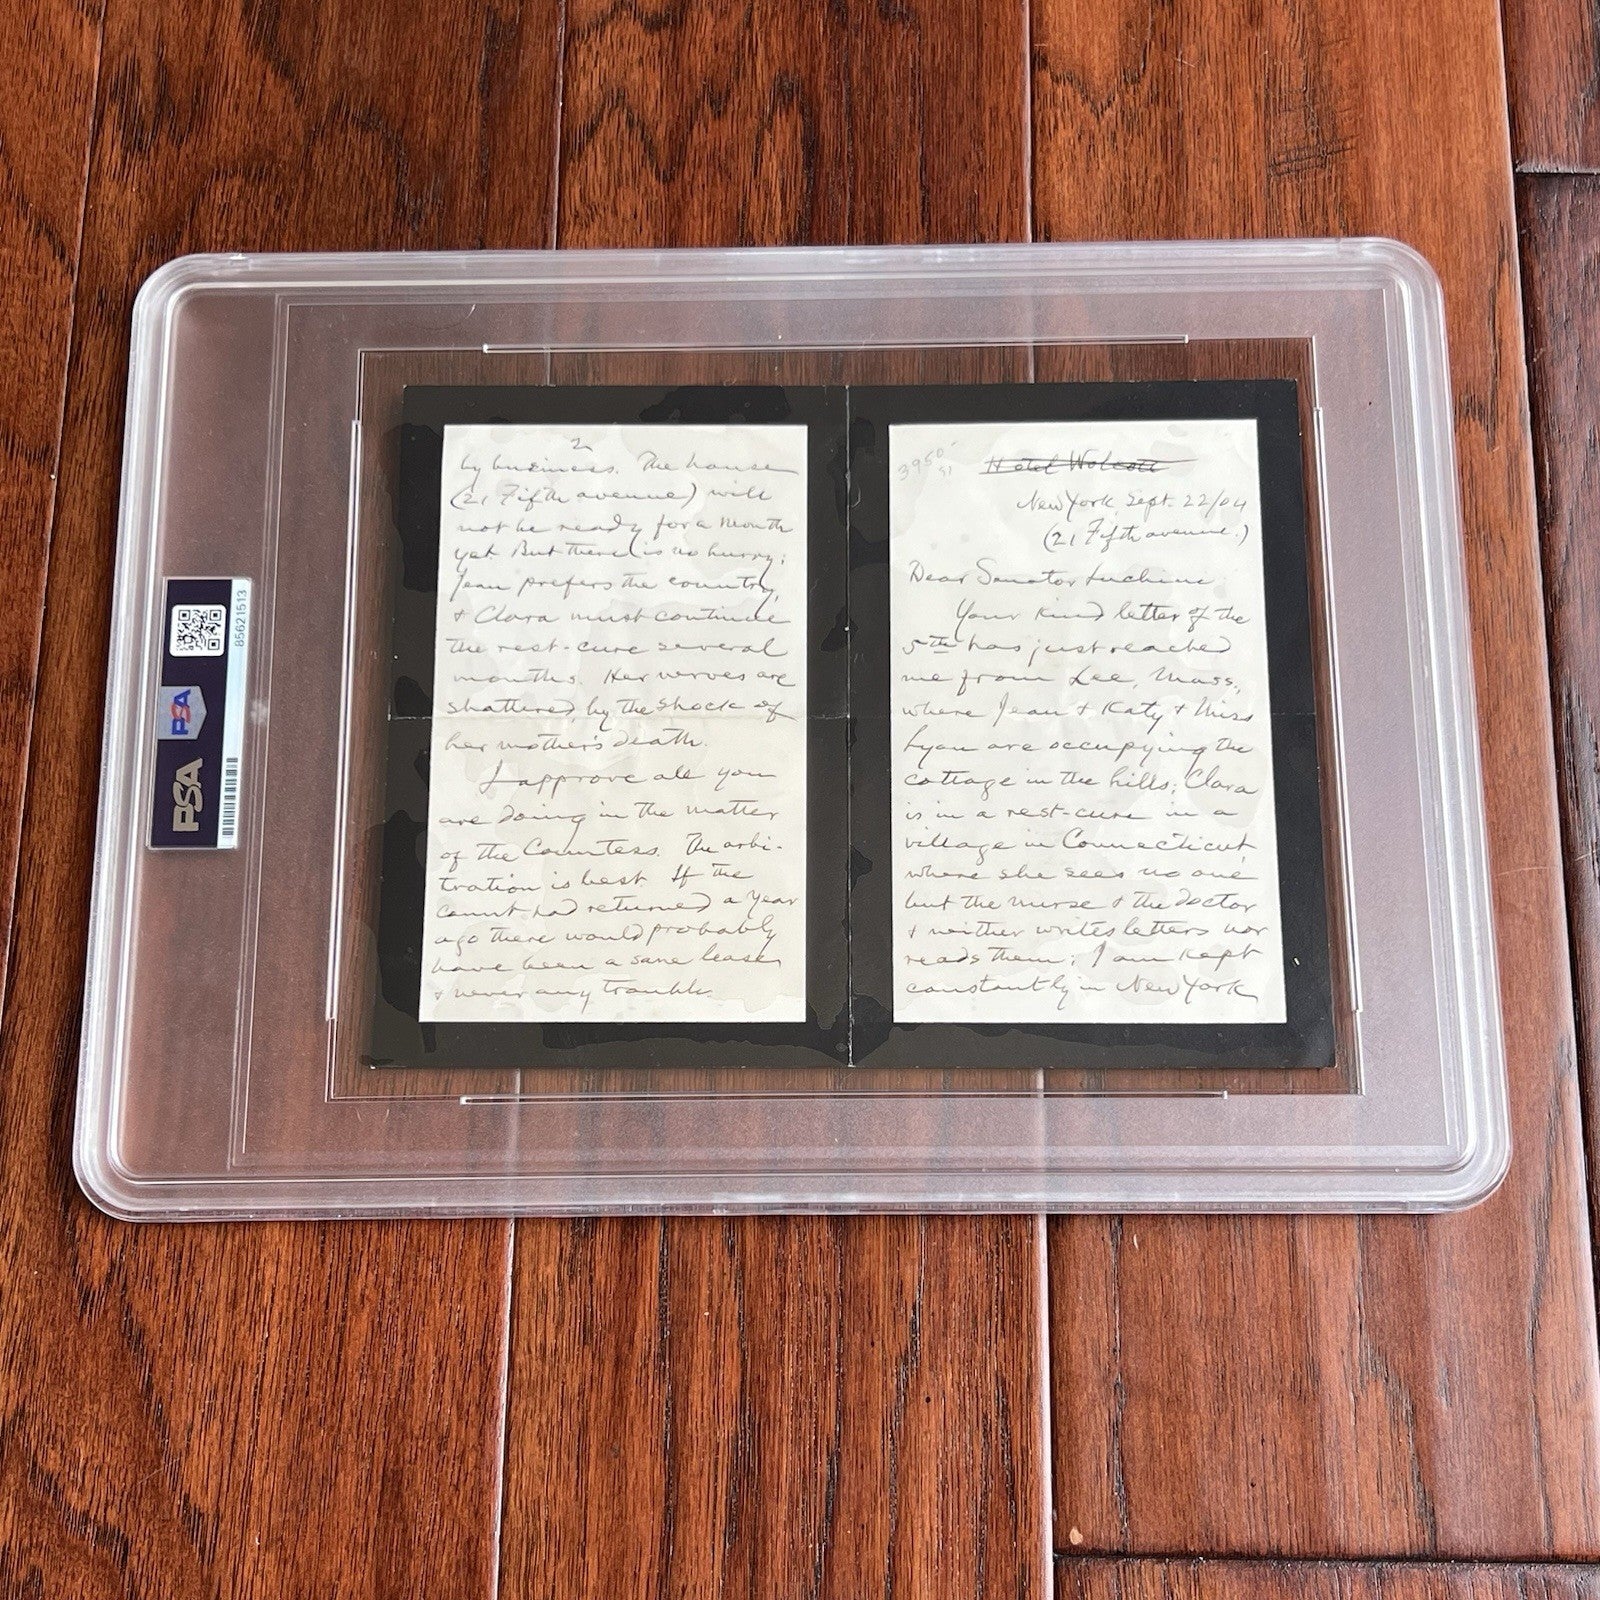 3950
91
Hotel Wolcott
New York, Sept. 22/04
(21 Fifth avenue.)
Dear Senator Luchini
Your kind letter of the
5th has just reached
me from Lee, Mass.,
where Jean & Katy & Miss
Lyon are occupying the
cottage in the hills; Clara
is in a rest-cure in a
village in Connecticut,
where she sees no one
but the nurse & the doctor
& neither writes letters nor
reads them; I am kept
constantly in New York
2
by business. The house
(21 Fifth avenue) will
not be ready for a month
yet. But there is no hurry;
Jean prefers the country,
& Clara must continue
the rest-cure several
months. Her nerves are
shattered by the shock of
her mother's death.
I approve all you
are doing in the matter
of the Countess. The arbi-
tration is best. If the
count had returned a year
ago there would probably
have been a sane lease,
& never any trouble.
PSA
PSA
85621513